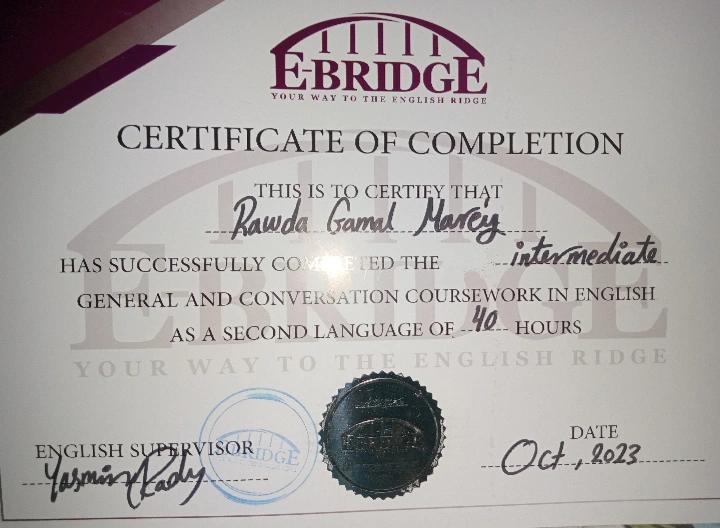 E-BRIDGE
YOUR WAY TO THE ENGLISH RIDGE
CERTIFICATE OF COMPLETION
THIS IS TO CERTIFY THAT
Rawda Gamal Marey
HAS SUCCESSFULLY COMPLETED THE intermediate
GENERAL AND CONVERSATION COURSEWORK IN ENGLISH
AS A SECOND LANGUAGE OF 40 HOURS
E-BRIDGE
YOUR WAY TO THE ENGLISH RIDGE
ENGLISH SUPERVISOR
Yasmin Rady
E-BRIDGE
E-BRIDGE
DATE
Oct, 2023